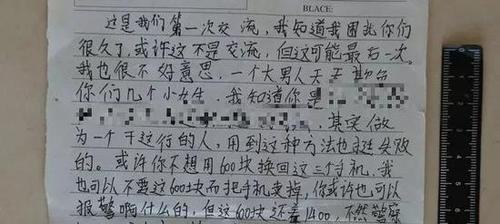 BLACE:
这是我们第一次交流,我知道我困扰你们
很久了,或许这不是交流,但这可能最后一次。
我也很不好意思,一个大男人天天
你们几个小女生,我知道你是
其实做
为一个干这行的人,用到这种方法也挺失败
的。或许你不想用600块换回这三个手机,我
也可以不要这600块而把手机卖掉,你或许也可以
报警啊什么的,但这600块还有1400,不然警察